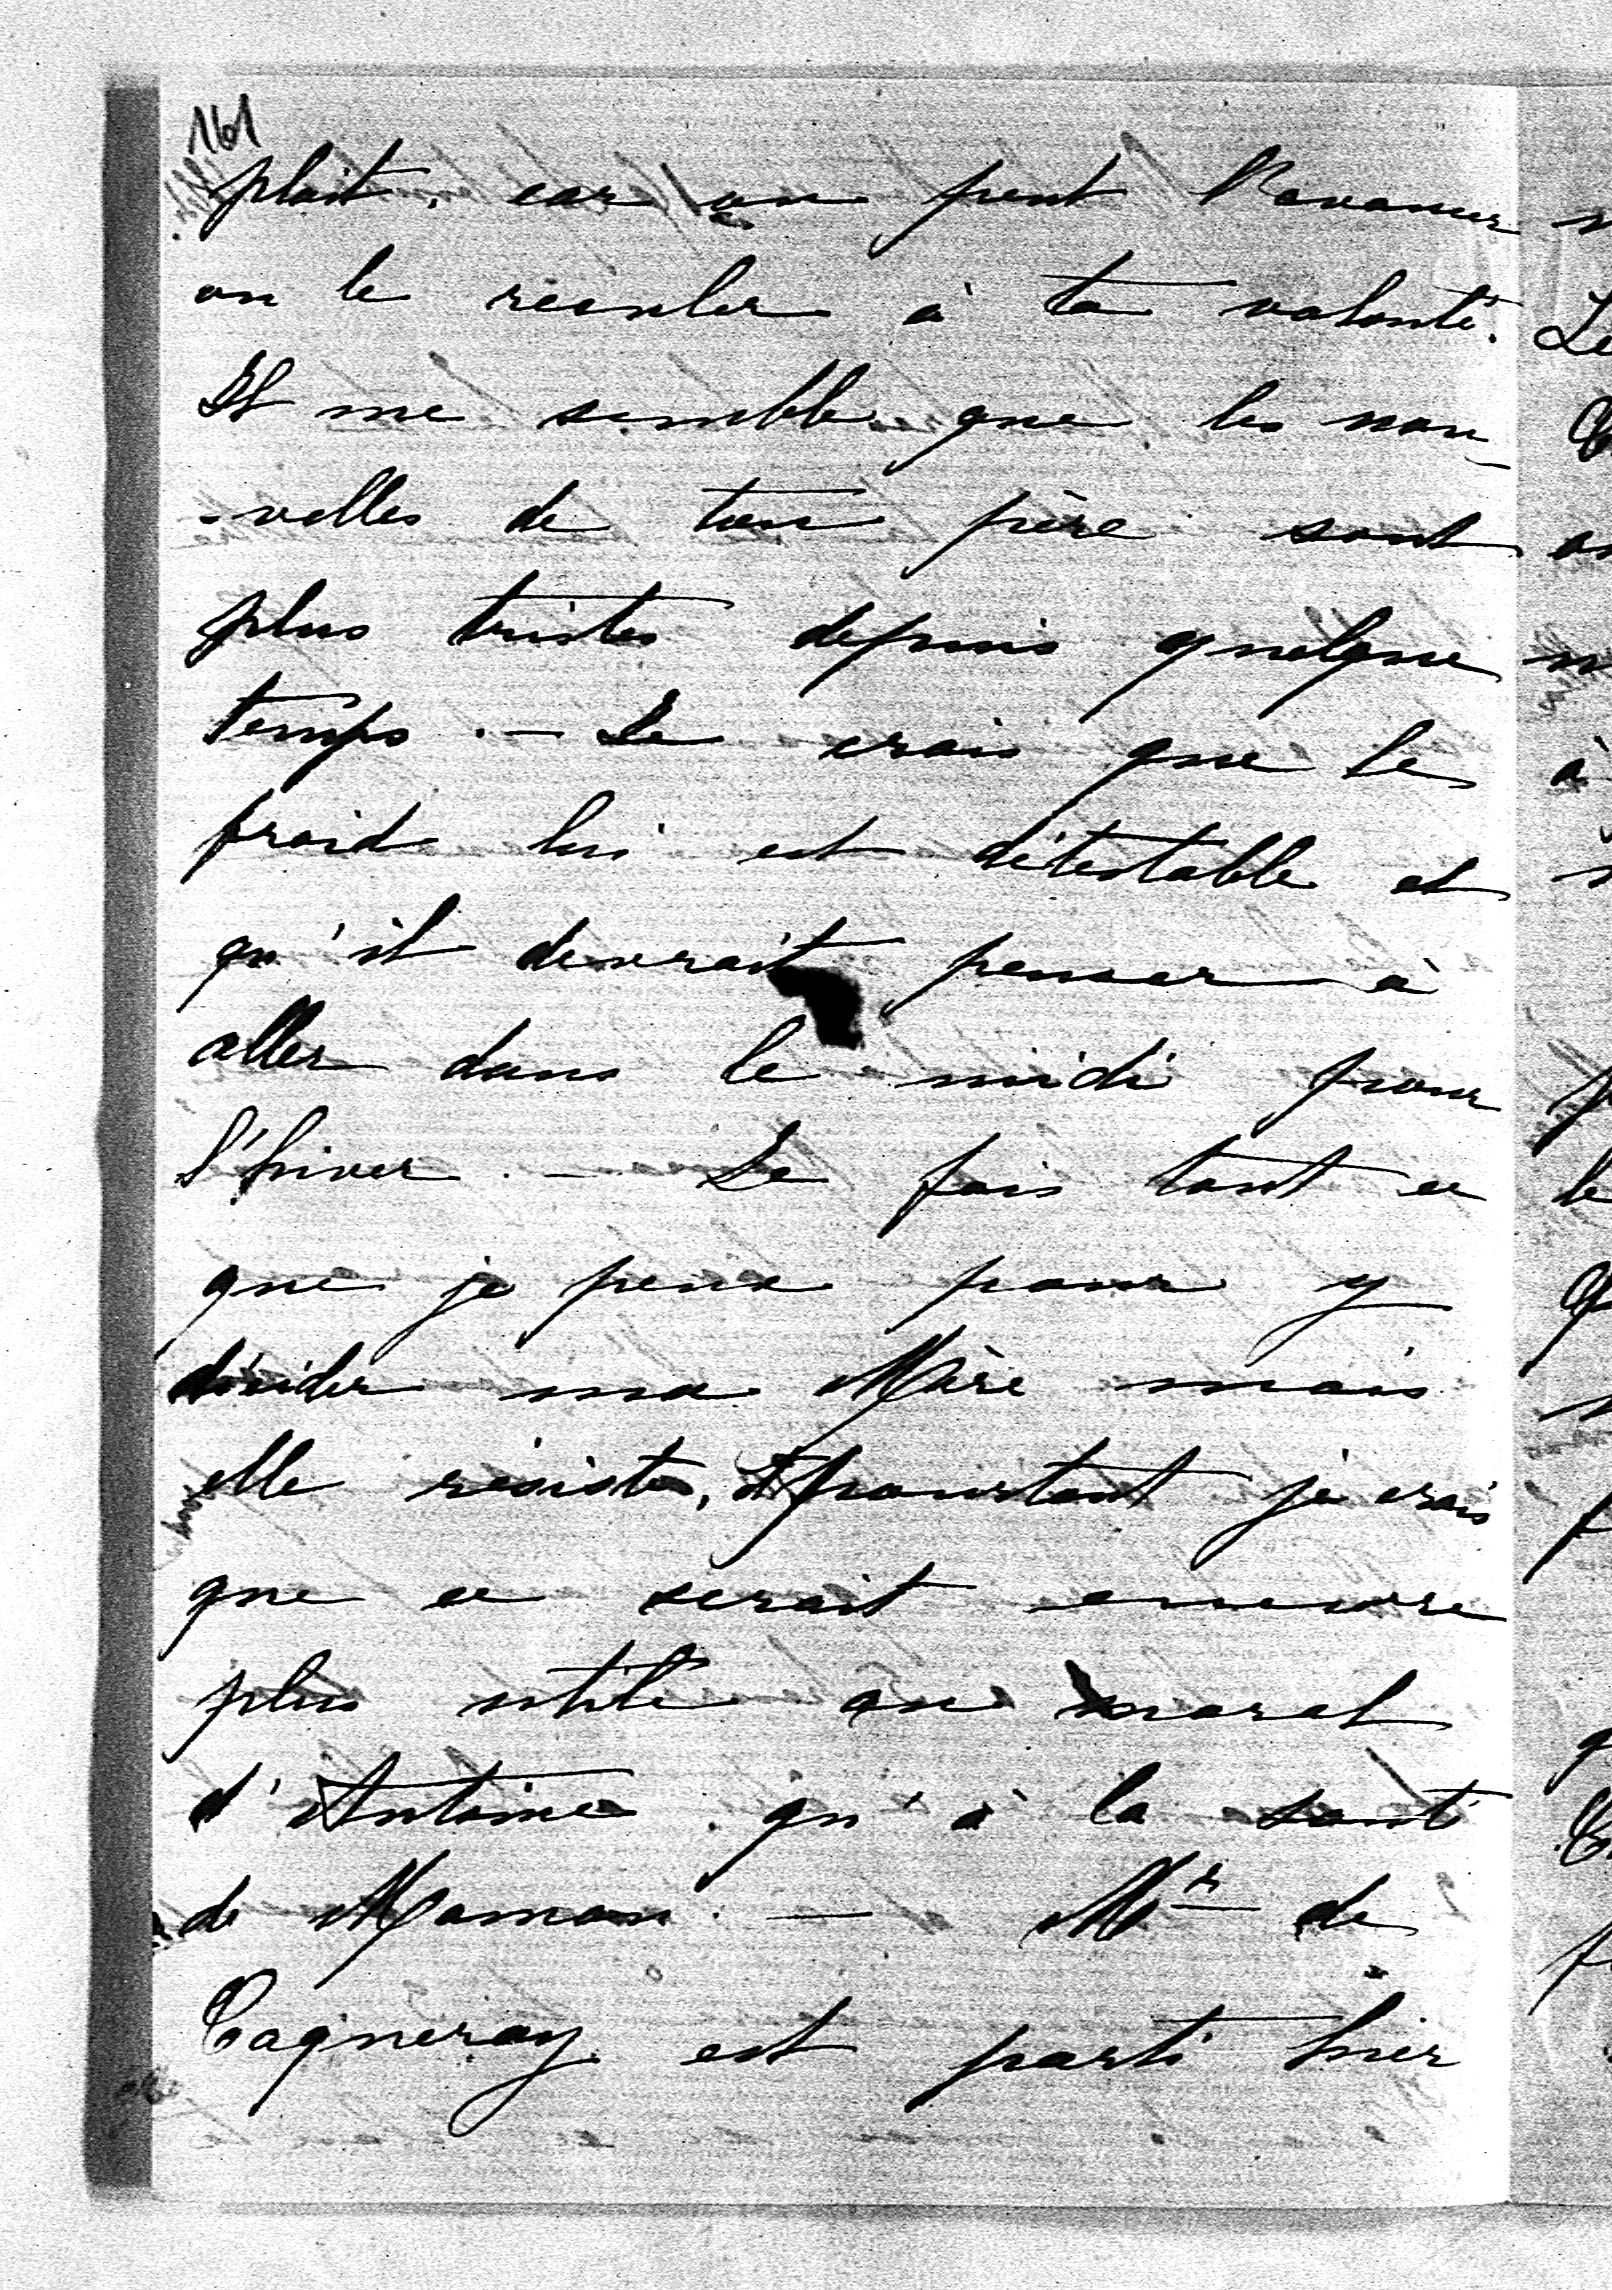 161
plait, car on peut l'avancer
ou le reculer à ta volonté.
Il me semble que les nou-
-velles de ton père sont
plus tristes depuis quelque
temps. — Je crois que le
froid lui est détestable et
qu'il devrait penser à
aller dans le midi pour
l'hiver. — Je fais tout ce
que je peux pour y
décider ma Mère mais
elle résiste, et pourtant je crois
que ce serait encore
plus utile au moral
d'Antoine qu'à la santé
de Maman. — Mr de
Cagneray est parti hier